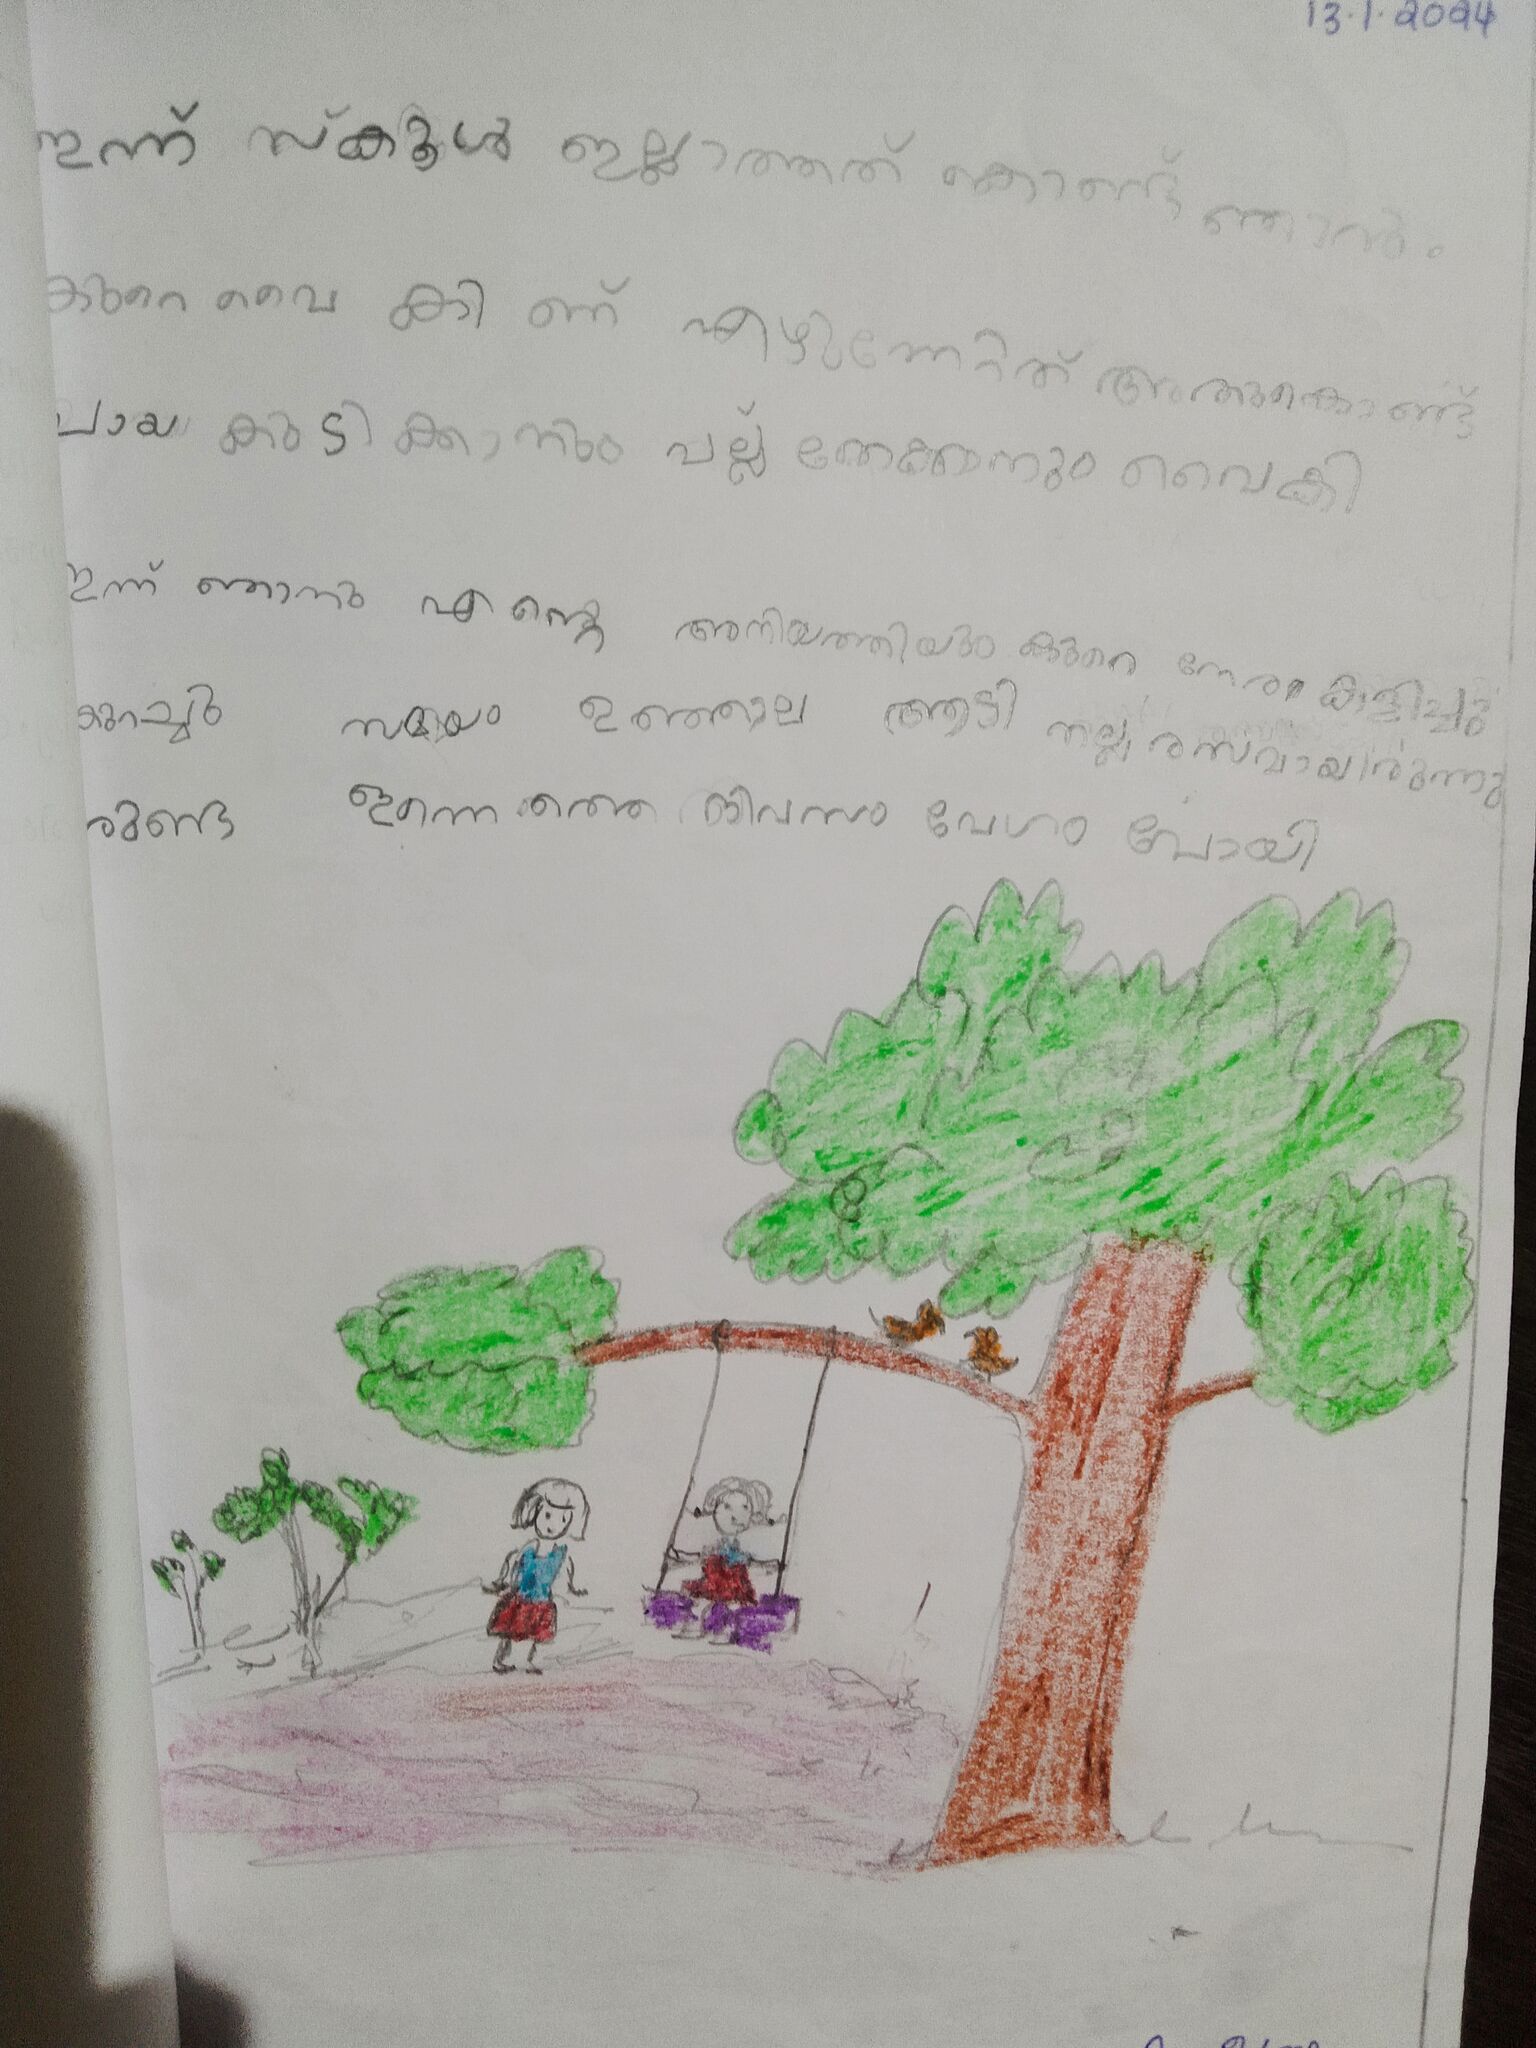 13.1.2024
ഇന്ന് സ്കൂൾ ഇല്ലാത്തത് കൊണ്ട് ഞാൻ.
കുറെ വൈ കി ണ് എഴുന്നേറ്റിത് അതുകൊണ്ട്
ചായ കുടി ക്കാനും പല്ല് തേക്കാനും വൈകി
ഇന്ന് ഞാനും എ ന്റെ അനിയത്തിയും കുറെ നേരം കളിച്ചു
കുറച്ചു സമയം ഉഞ്ഞാല ആടി നല്ല രസവായിരുന്നു
ഇന്നെ ത്തെ ദിവസം വേഗം പോയി